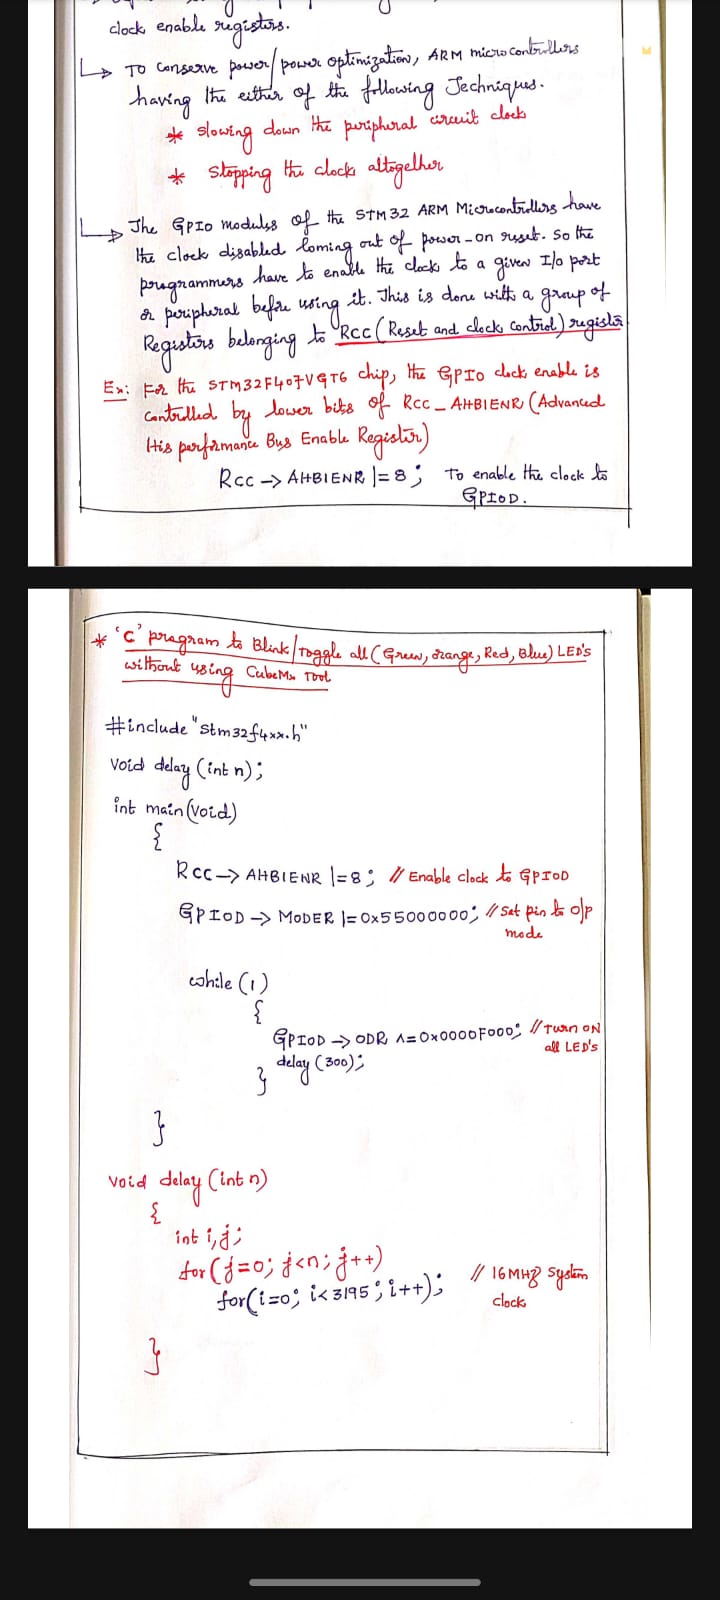 clock enable registers.
↳ To Conserve power/power optimization, ARM microcontrollers
having the either of the following Techniques.
* slowing down the peripheral circuit clock
* Stopping the clock altogether
↳ The GPIO modules of the STM32 ARM Microcontrollers have
the clock disabled coming out of power-on reset. So the
programmers have to enable the clock to a given I/o port
or peripheral before using it. This is done with a group of
Registers belonging to RCC (Reset and clock Control) register
Ex: For the STM32F407VGT6 chip, the GPIO clock enable is
Controlled by lower bits of RCC_AHB1ENR (Advanced
His performance Bus Enable Register)
RCC -> AHB1ENR |= 8; To enable the clock to
GPIOD.
* 'C' program to Blink/Toggle all (Green, orange, Red, Blue) LED's
without using CubeMx Tool
#include "stm32f4xx.h"
void delay (int n);
int main(void)
{
RCC -> AHB1ENR |= 8; // Enable clock to GPIOD
GPIOD -> MODER |= 0x55000000; // Set pin to o/p
mode
while (1)
{
GPIOD -> ODR ^= 0x0000F000; // Turn ON
all LED's
delay (300);
}
}
void delay (int n)
{
int i,j;
for (j=0; j<n; j++)
for(i=0; i<3195; i++); // 16MHz System
clock
}